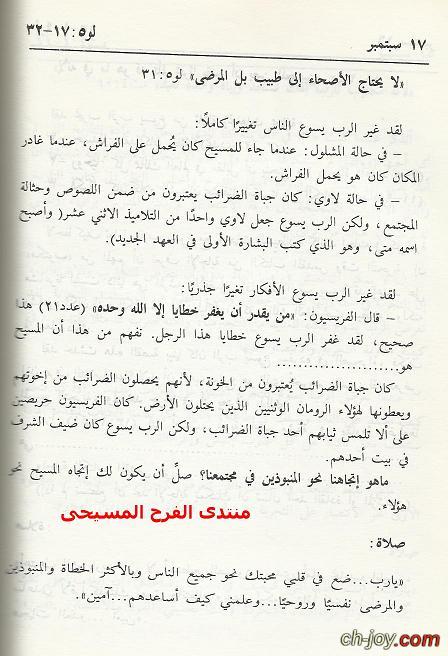 ١٧ سبتمبر لو٥: ١٧-٣٢
«لا يحتاج الأصحاء إلى طبيب بل المرضى» لو٥: ٣١
لقد غير الرب يسوع الناس تغييرًا كاملًا:
– في حالة المشلول: عندما جاء للمسيح كان يُحمل على الفراش، عندما غادر
المكان كان هو يحمل الفراش.
– في حالة لاوي: كان جباة الضرائب يعتبرون من ضمن اللصوص وحثالة
المجتمع، ولكن الرب يسوع جعل لاوي واحدًا من التلاميذ الاثني عشر( وأصبح
اسمه متى، وهو الذي كتب البشارة الأولى في العهد الجديد).
لقد غير الرب يسوع الأفكار تغيرًا جذريًا:
– قال الفريسيون: «من يقدر أن يغفر خطايا إلا الله وحده» (عدد٢١) هذا
صحيح، لقد غفر الرب يسوع خطايا هذا الرجل. نفهم من هذا أن المسيح
هو.......................
كان جباة الضرائب يُعتبرون من الخونة، لأنهم يحصلون الضرائب من إخوتهم
ويعطونها لهؤلاء الرومان الوثنيين الذين يحتلون الأرض. كان الفريسيون حريصين
على ألا تلمس ثيابهم أحد جباة الضرائب، ولكن الرب يسوع كان ضيف الشرف
في بيت أحدهم.
ماهو إتجاهنا نحو المنبوذين في مجتمعنا؟ صلِّ أن يكون لك إتجاه المسيح نحو
هؤلاء.
منتدى الفرح المسيحى
صلاة:
«يارب...ضع في قلبي محبتك نحو جميع الناس وبالأكثر الخطاة والمنبوذين
والمرضى نفسيًا وروحيًا...وعلمني كيف أساعدهم...آمين».
ch-joy.com